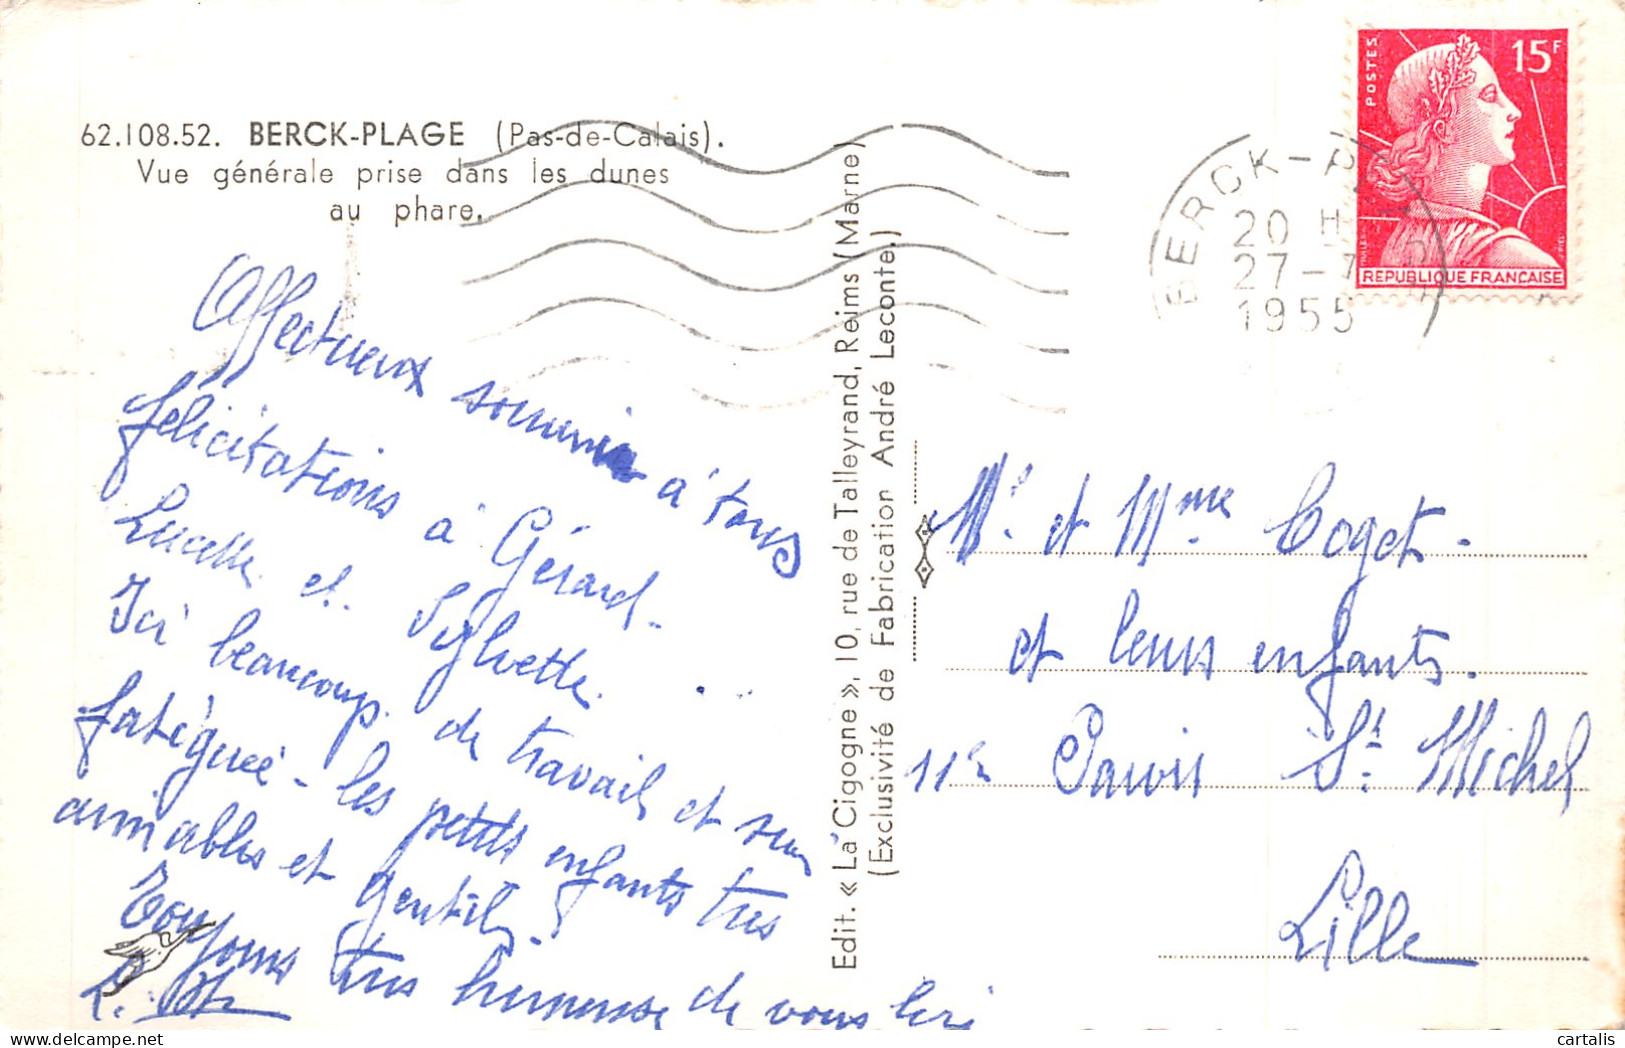 62.108.52. BERCK-PLAGE (Pas-de-Calais).
Vue générale prise dans les dunes
au phare.
Affectueux souvenir à tous
félicitations à Gérard-
Lucette et Sylvette.
Ici beaucoup de travail et suis
fatiguée - les petits enfants très
aimables et gentils.
Toujours très heureuse de vous lire
Edit. « La Cigogne », 10, rue de Talleyrand, Reims (Marne)
(Exclusivité de Fabrication André Leconte.)
POSTES
15F
REPUBLIQUE FRANCAISE
BERCK-P
20 H
27-7
1955
Mr et Mme Coget-
et leurs enfants.
11 Parvis St Michel
Lille
cartalis